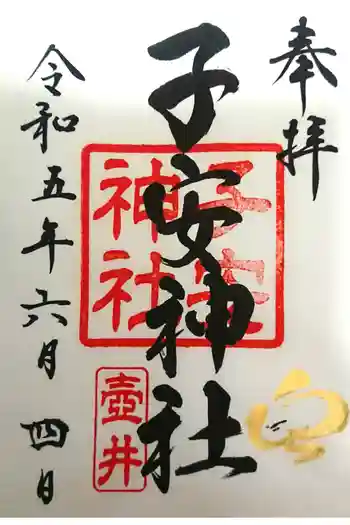 奉拝
子安神社
子安神社
壺井
令和五年六月四日